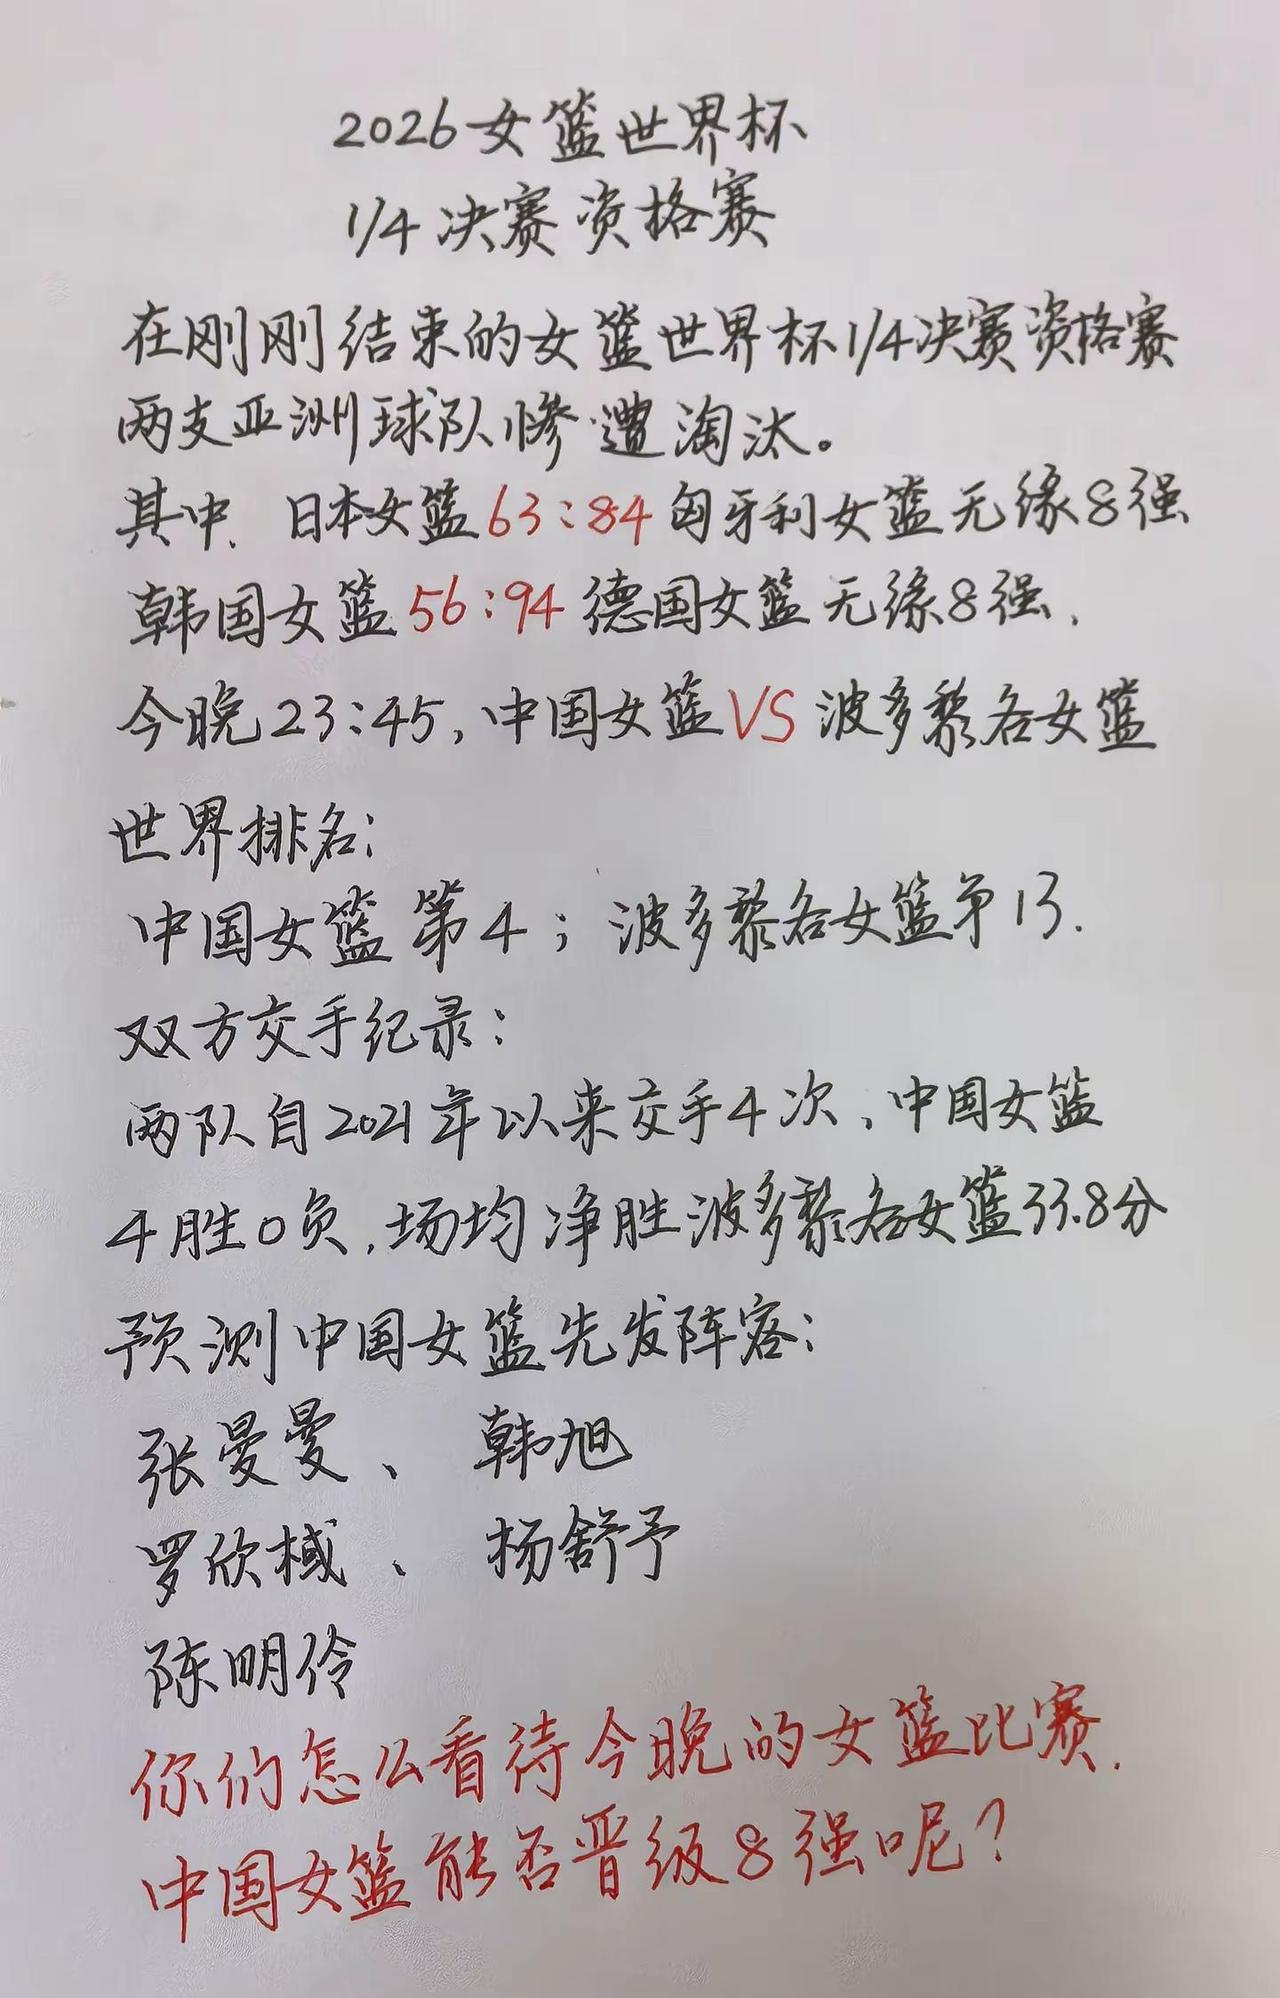 2026女篮世界杯
1/4决赛资格赛
在刚刚结束的女篮世界杯1/4决赛资格赛
两支亚洲球队惨遭淘汰。
其中、日本女篮63:84匈牙利女篮无缘8强
韩国女篮56:94德国女篮无缘8强.
今晚23:45,中国女篮VS波多黎各女篮
世界排名:
中国女篮第4;波多黎各女篮第13.
双方交手纪录:
两队自2021年以来交手4次、中国女篮
4胜0负,场均净胜波多黎各女篮33.8分
预测中国女篮先发阵容:
张曼曼、韩旭
罗欣棫、杨舒予
陈明伶
你们怎么看待今晚的女篮比赛.
中国女篮能否晋级8强呢?